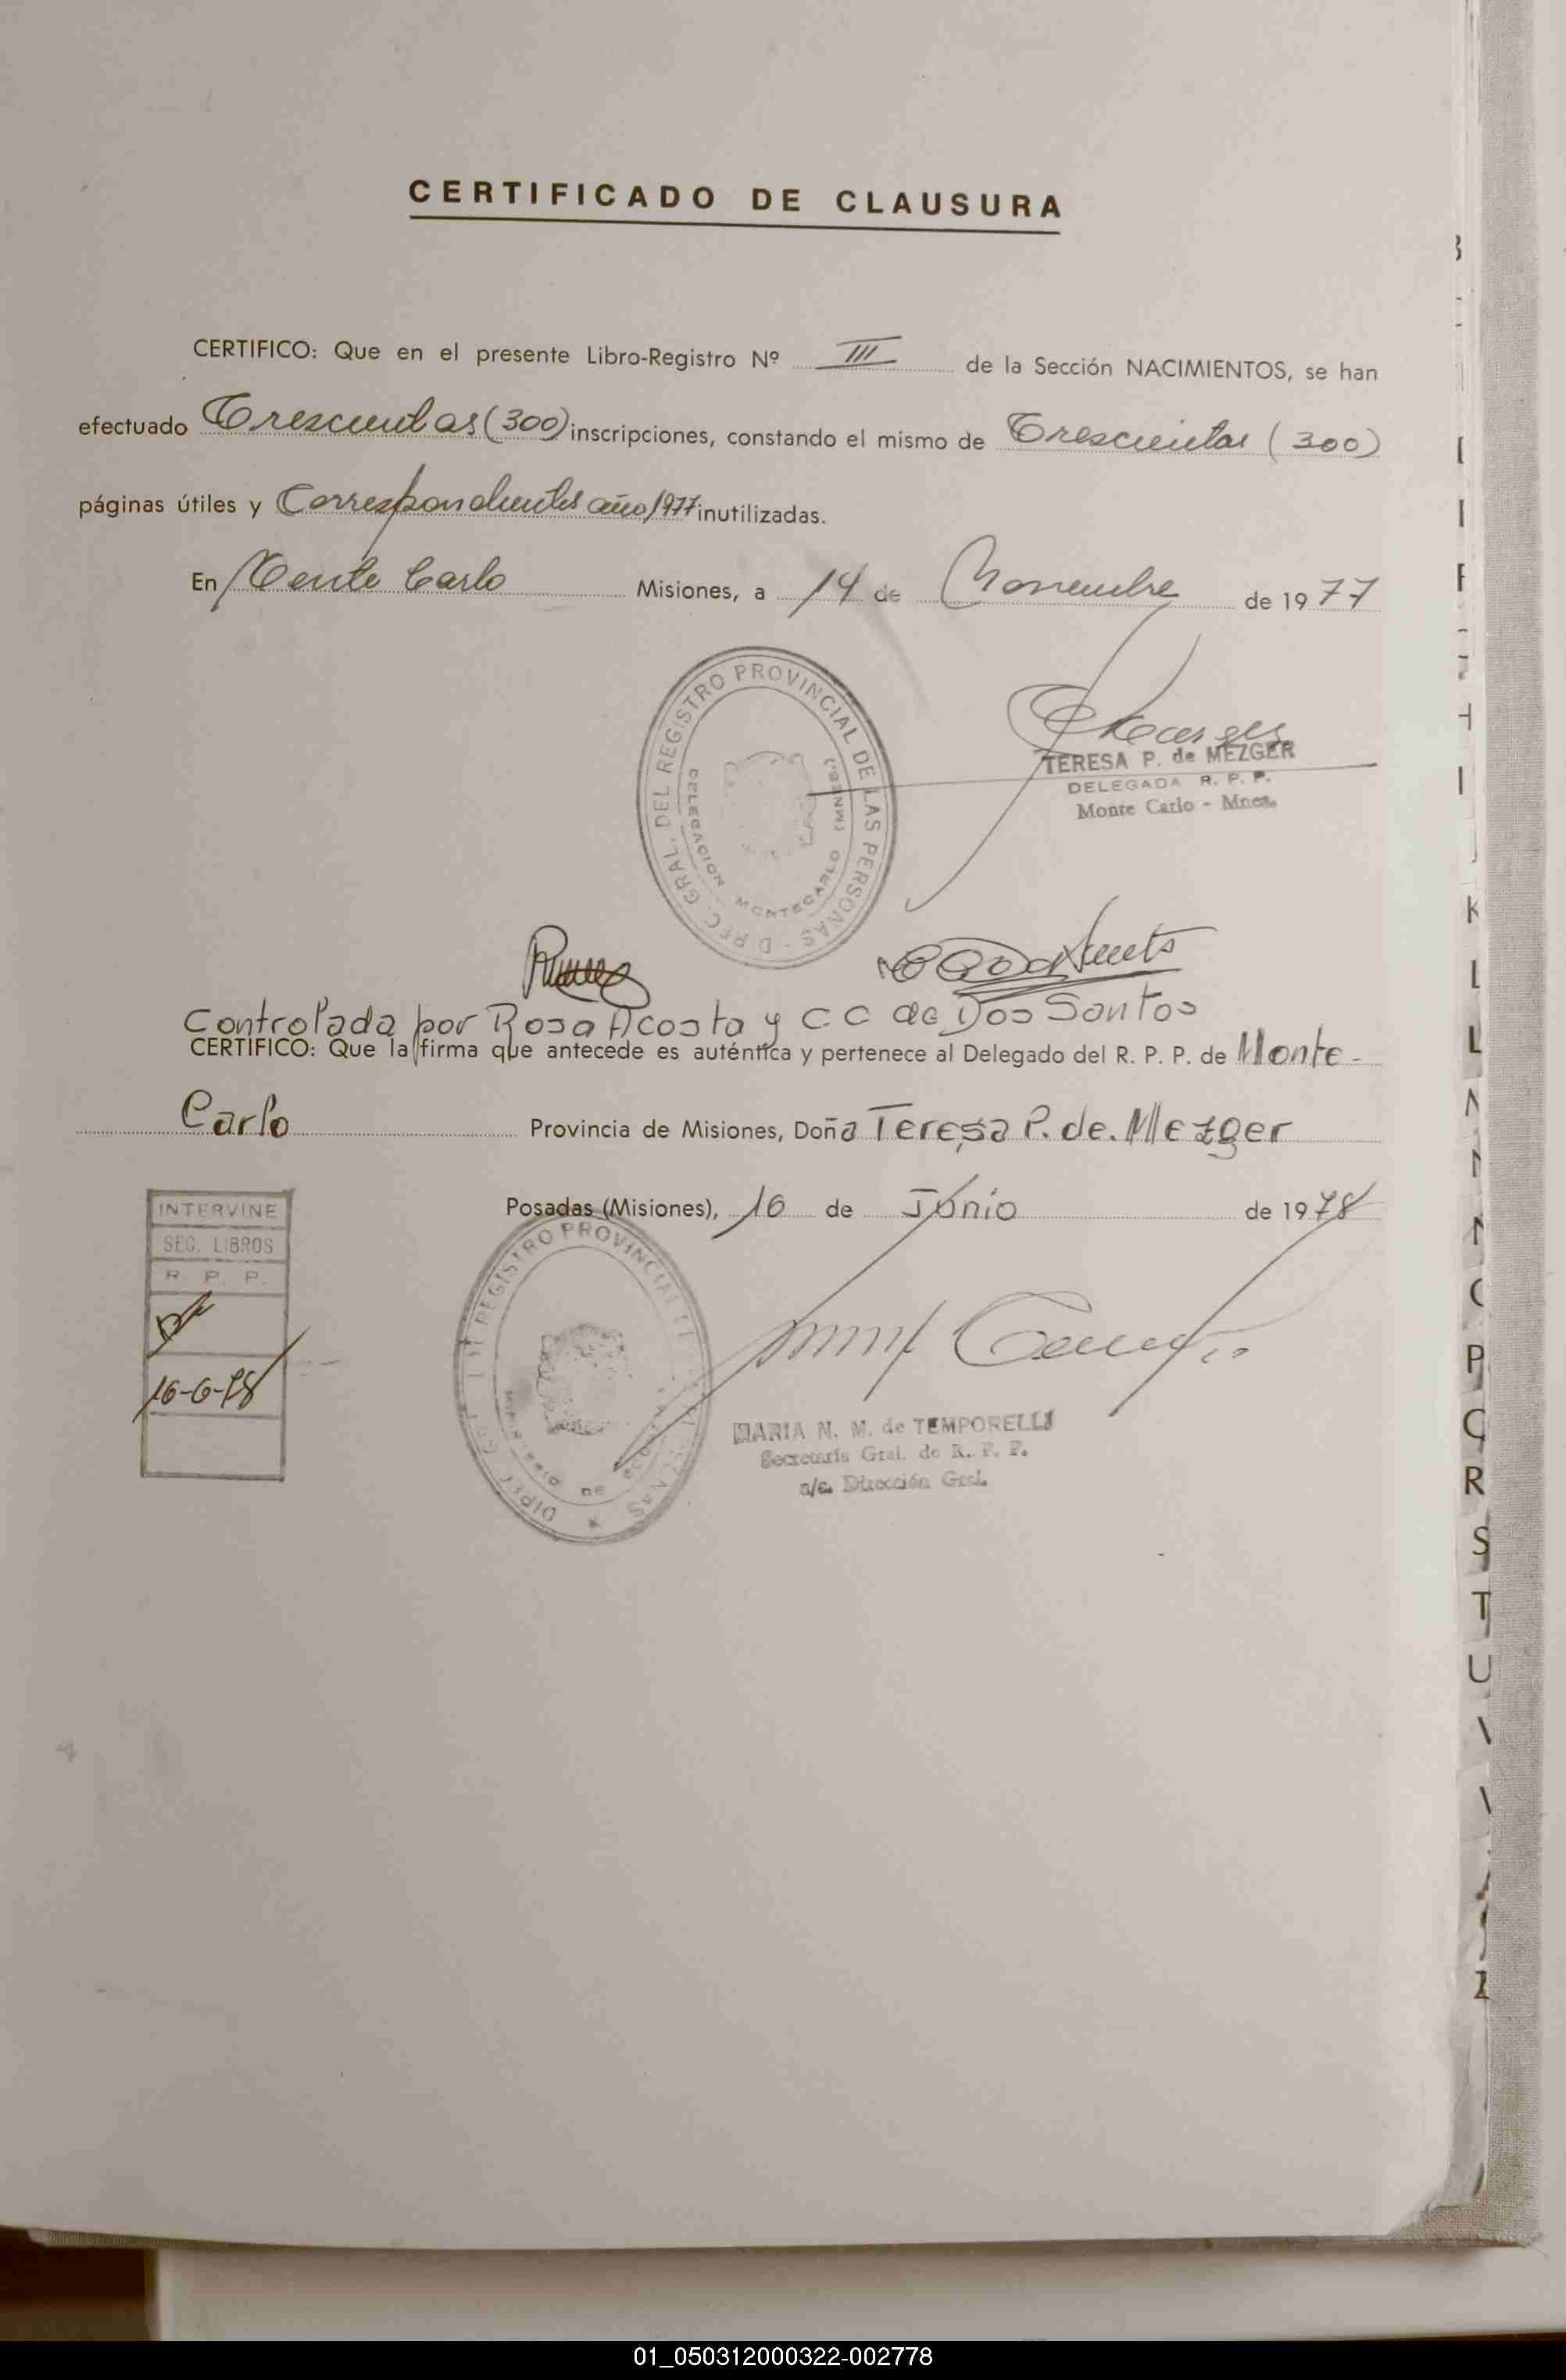 CERTIFICADO DE CLAUSURA
CERTIFICO: Que en el presente Libro-Registro Nº III de la Sección NACIMIENTOS, se han
efectuado Trescientas (300) inscripciones, constando el mismo de Trescientas (300)
páginas útiles y Correspondientes año/1977 inutilizadas.
En Monte Carlo Misiones, a 14 de Noviembre de 1977
DIREC. GRAL. DEL REGISTRO PROVINCIAL DE LAS PERSONAS
DELEGACION MONTECARLO (MNES.)
TERESA P. de MEZGER
DELEGADA R. P. P.
Monte Carlo - Mnes.
Controlada por Rosa Acosta y CC de Dos Santos
CERTIFICO: Que la firma que antecede es auténtica y pertenece al Delegado del R. P. P. de Monte-
Carlo Provincia de Misiones, Doña Teresa P. de. Mezger
Posadas (Misiones), 16 de Junio de 1978
INTERVINE
SEC. LIBROS
R. P. P.
16-6-78
REGISTRO PROVINCIAL
MINISTERIO DE
MARIA N. M. de TEMPORELLI
Secretaria Gral. de R. P. P.
a/c. Dirección Gral.
K
L
L
P
R
S
T
U
Z
01_050312000322-002778